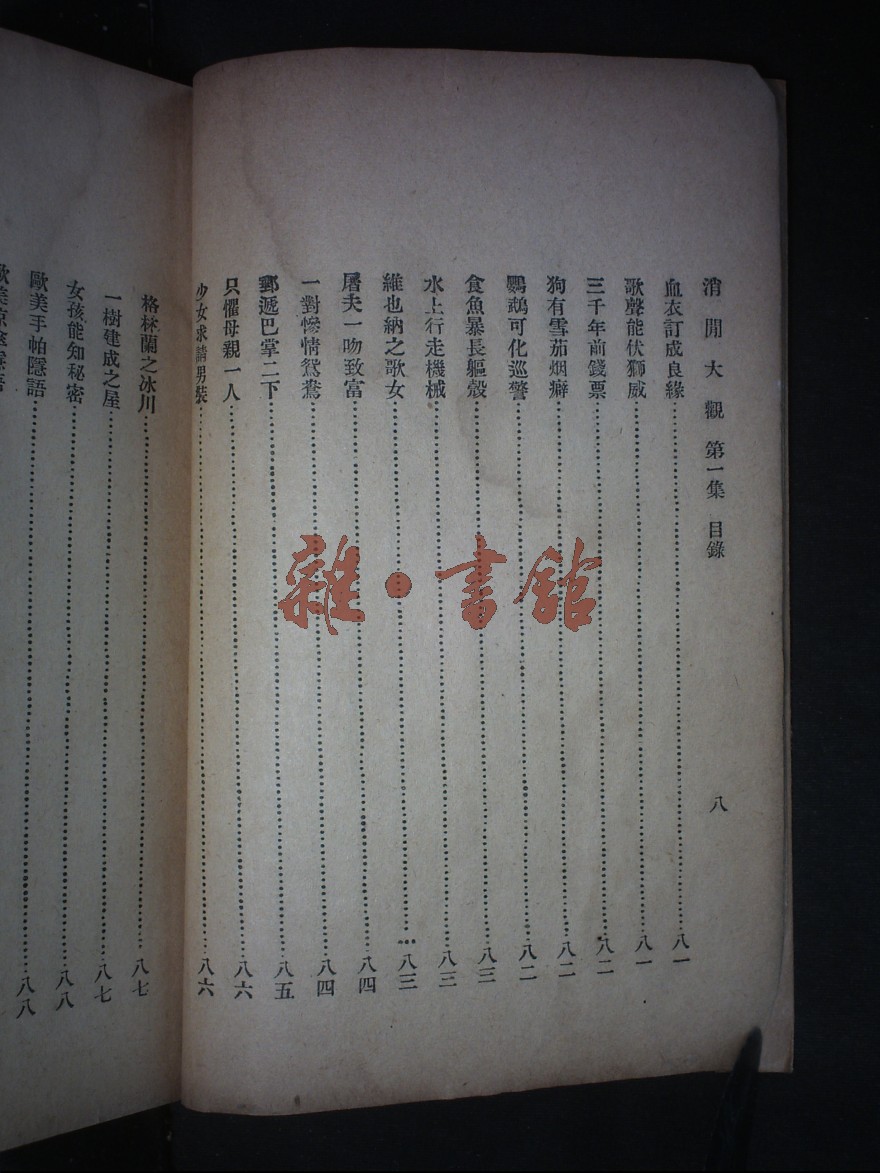 消閒大觀 第一集 目錄 八
血衣訂成良緣 八一
歌聲能伏獅威 八一
三千年前錢票 八二
狗有雪茄烟癖 八二
鸚鵡可化巡警 八二
食魚暴長軀殼 八三
水上行走機械 八三
維也納之歌女 八三
屠夫一吻致富 八四
一對慘情鴛鴦 八四
郵遞巴掌二下 八五
只懼母親一人 八六
少女求請男裝 八六
格林蘭之冰川 八七
一樹建成之屋 八七
女孩能知秘密 八八
歐美手帕隱語 八八
雜·書館